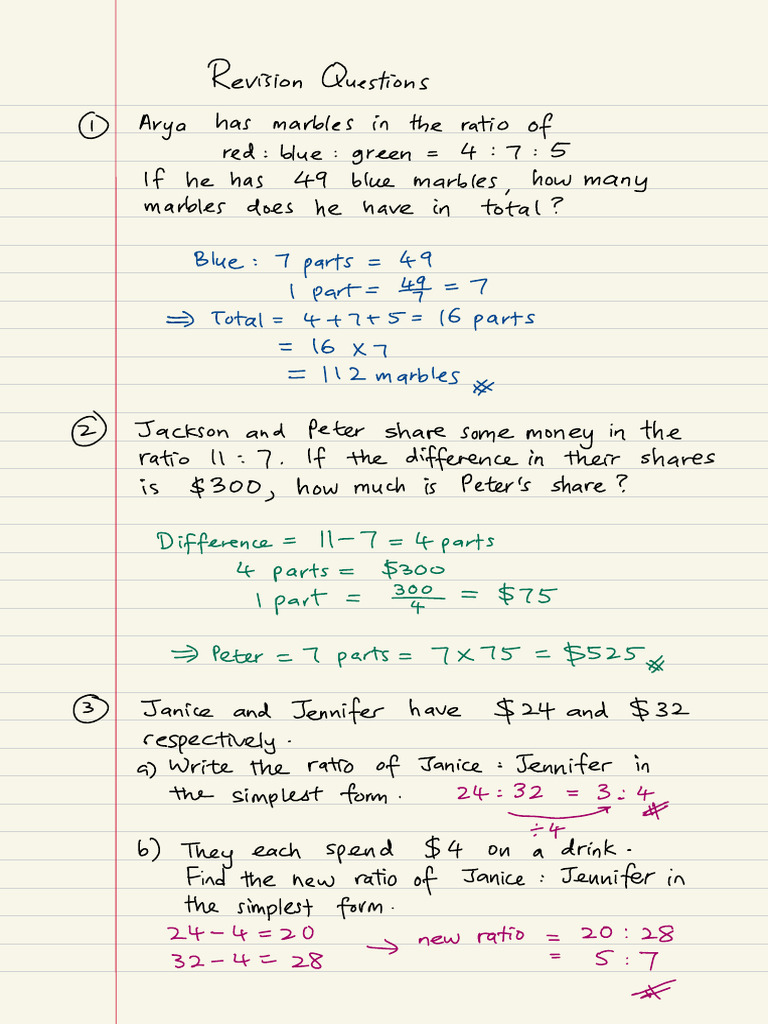 Revision Questions
① Arya has marbles in the ratio of
red : blue : green = 4 : 7 : 5
If he has 49 blue marbles, how many
marbles does he have in total?
Blue : 7 parts = 49
1 part = 49/7 = 7
⇒ Total = 4 + 7 + 5 = 16 parts
= 16 × 7
= 112 marbles
② Jackson and Peter share some money in the
ratio 11 : 7. If the difference in their shares
is $300, how much is Peter's share?
Difference = 11 - 7 = 4 parts
4 parts = $300
1 part = 300/4 = $75
⇒ Peter = 7 parts = 7 × 75 = $525
③ Janice and Jennifer have $24 and $32
respectively.
a) Write the ratio of Janice : Jennifer in
the simplest form. 24 : 32 = 3 : 4
÷4
b) They each spend $4 on a drink.
Find the new ratio of Janice : Jennifer in
the simplest form.
24 - 4 = 20 → new ratio = 20 : 28
32 - 4 = 28 = 5 : 7